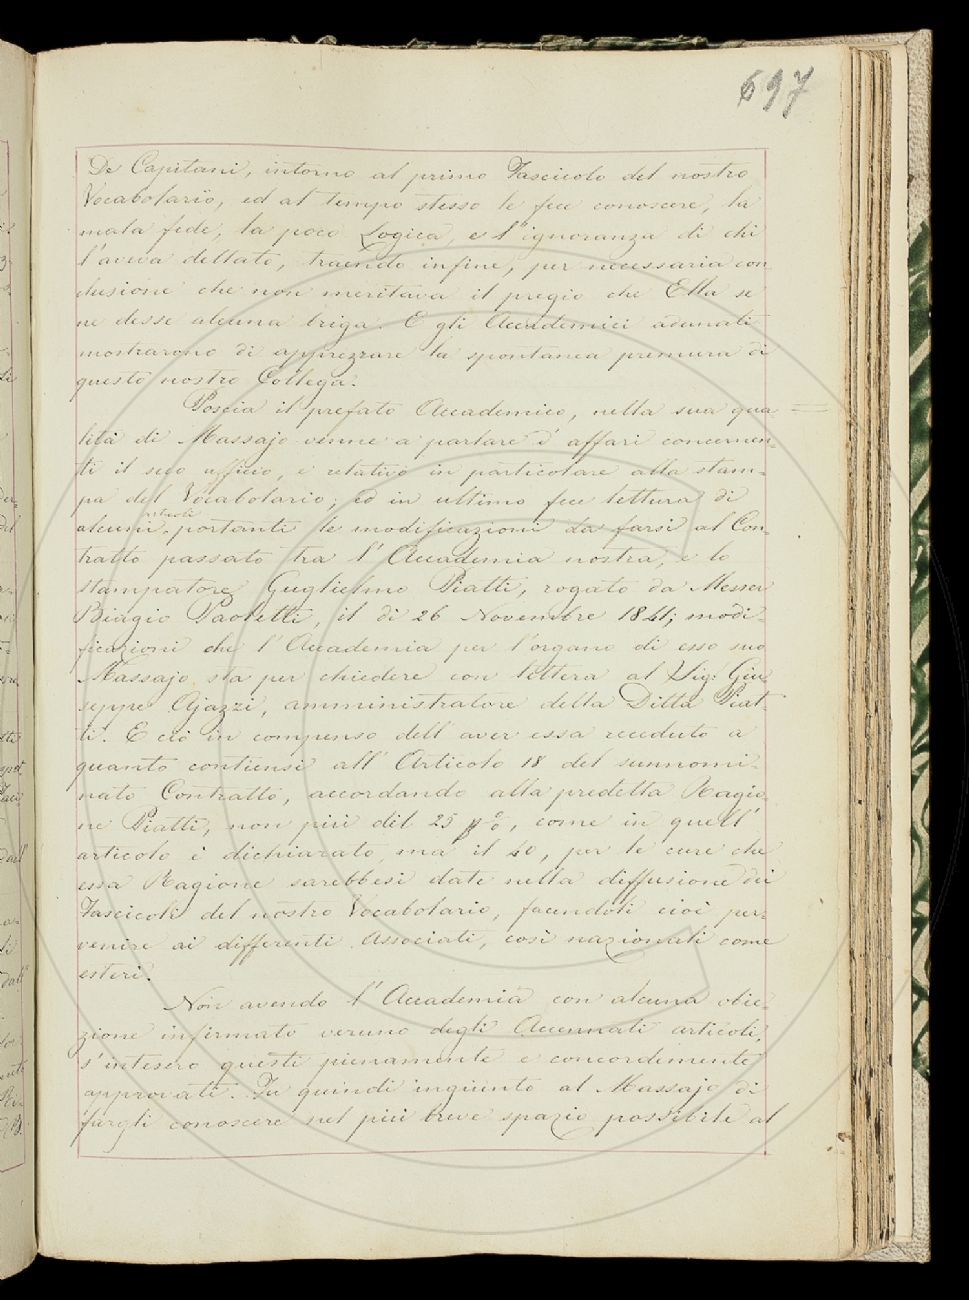 697
De Capitani, intorno al primo Fascicolo del nostro
Vocabolario, ed al tempo stesso le fece conoscere, la
mala fede, la poca Logica, e l'ignoranza di chi
l'aveva dettato, traendo infine, per necessaria con
clusione che non meritava il pregio che Ella se
ne desse alcuna briga. E gli Accademici adunati
mostrarono di apprezzare la spontanea premura di
questo nostro Collega.
Poscia il prefato Accademico, nella sua qua
lità di Massajo venne a parlare d'affari concernen-
ti il suo ufficio, e relativo in particolare alla stam-
pa del Vocabolario; ed in ultimo fece lettura di
alcuni articoli portanti le modificazioni da farsi al Con-
tratto passato tra l'Accademia nostra, e lo
stampatore Guglielmo Piatti, rogato da Messer
Biagio Paoletti, il dì 26 Novembre 1841; modi-
ficazioni che l'Accademia per l'organo di esso suo
Massajo sta per chiedere con lettera al Sig. Giu
seppe Ajazzi, amministratore della Ditta Piat
ti. E ciò in compenso dell'aver essa receduto a
quanto contiensi all'Articolo 18 del sunnomi-
nato Contratto, accordando alla predetta Ragio-
ne Piatti, non più del 25 p%, come in quell'
articolo è dichiarato, ma il 40, per le cure che
essa Ragione sarebbesi date nella diffusione dei
Fascicoli del nostro Vocabolario, facendoli cioè per-
venire ai differenti Associati, così nazionali come
esteri.
Non avendo l'Accademia con alcuna obie-
zione infirmato veruno degli Accennati articoli,
s'intesero questi pienamente e concordemente
approvati. Fu quindi ingiunto al Massajo di
fargli conoscere nel più breve spazio possibile al